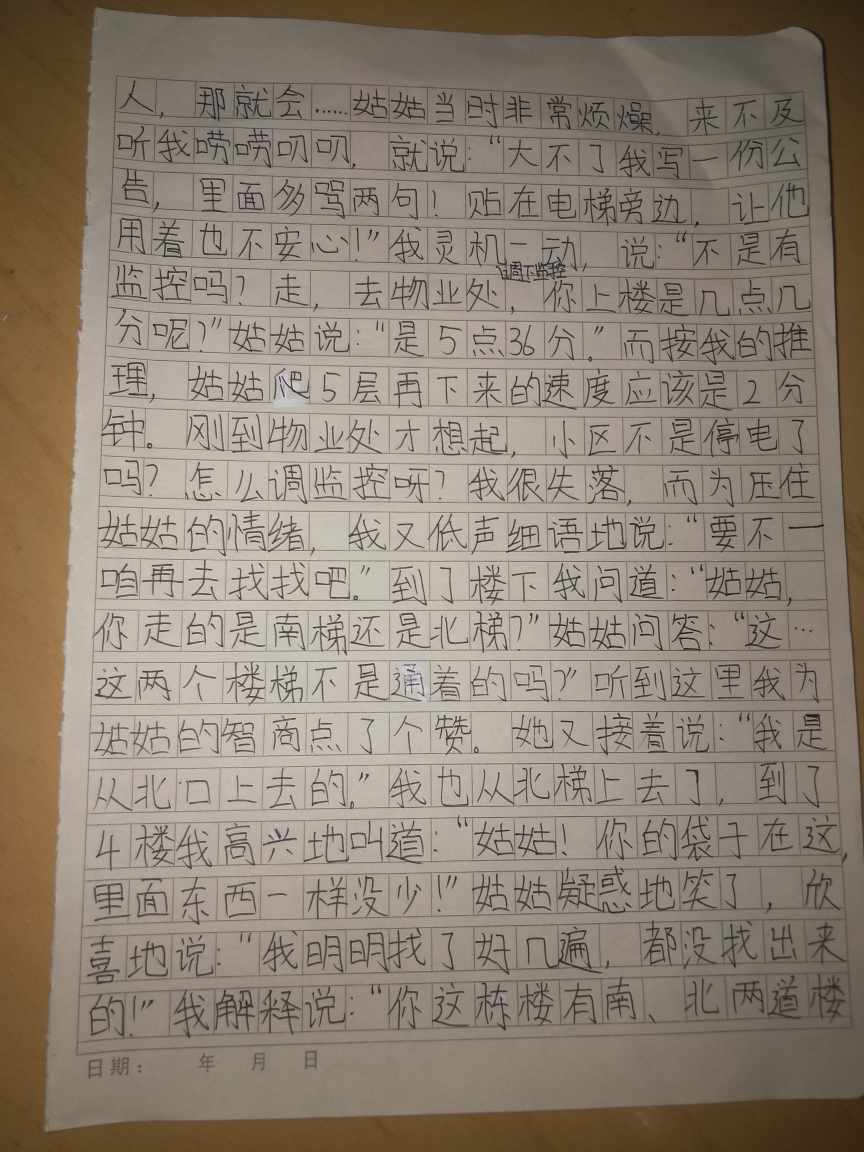 人，那就会……姑姑当时非常烦燥，来不及
听我唠唠叨叨，就说：“大不了我写一份公
告，里面多骂两句！贴在电梯旁边，让他
用着也不安心！”我灵机一动，说：“不是有
调下监控
监控吗？走，去物业处，你上楼是几点几
分呢？”姑姑说：“是5点36分。”而按我的推
理，姑姑爬5层再下来的速度应该是2分
钟。刚到物业处才想起，小区不是停电了
吗？怎么调监控呀？我很失落，而为压住
姑姑的情绪，我又低声细语地说：“要不一
咱再去找找吧。”到了楼下我问道：“姑姑，
你走的是南梯还是北梯？”姑姑问答：“这…
这两个楼梯不是通着的吗？”听到这里我为
姑姑的智商点了个赞。她又接着说：“我是
从北口上去的。”我也从北梯上去了，到了
4楼我高兴地叫道：“姑姑！你的袋子在这，
里面东西一样没少！”姑姑疑惑地笑了，欣
喜地说：“我明明找了好几遍，都没找出来
的！”我解释说：“你这栋楼有南、北两道楼
日期： 年 月 日